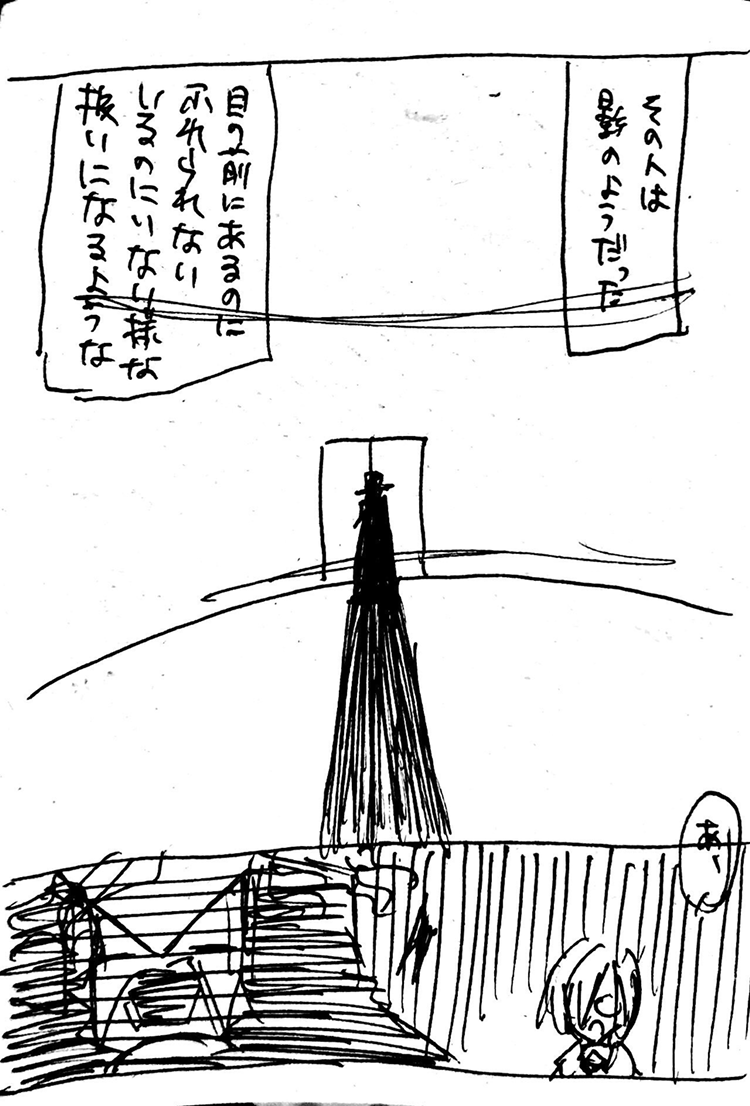 その人は
影のようだった
目の前にあるのに
ふれられない
いるのにいない様な
扱いになるような
あ、